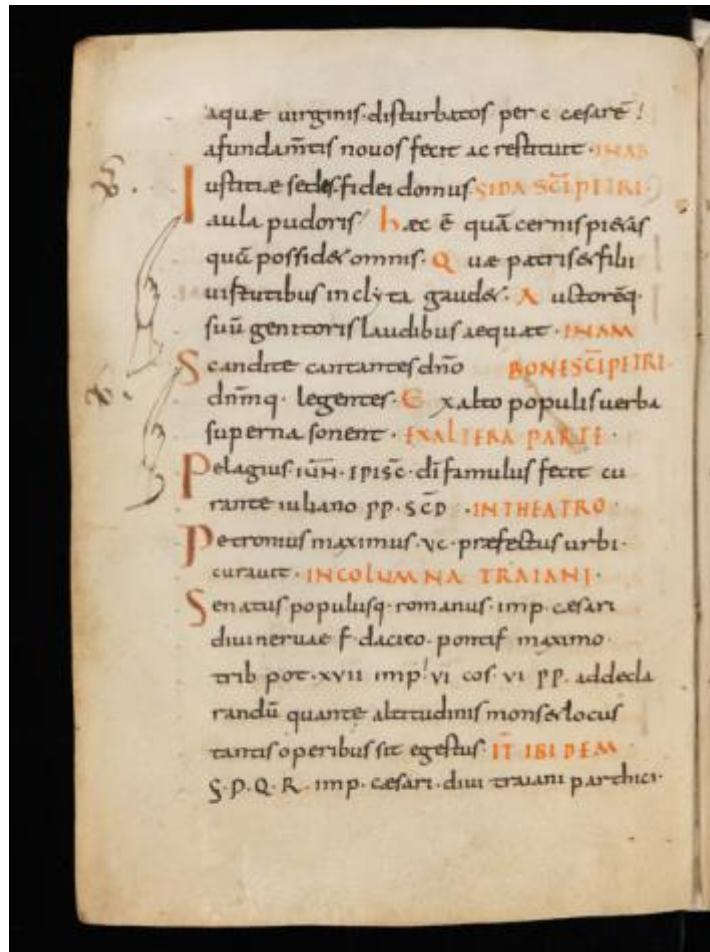 aquæ uirginis · disturbatos per c cæsarē !
afundam̄tis nouos fecit ac restituit · IN AB
Iustitiæ sedes · fidei domus SIDA SC̄I PETRI ·
aula pudoris / hæc ē quā cernis pietas
quā possidet omnis · Quæ patris et filii
uirtutibus inclyta gaudet · Auctorēq·
suū genitoris laudibus aequat · IN AM
Scandite cantantes dn̄o BONE SC̄I PETRI ·
dn̄mq· legentes · Ex alto populis uerba
superna sonent · EX ALTERA PARTE ·
Pelagius · iūn · episc̄ · dī famulus fecit cu
rante iuliano pp · sc̄d · IN THEATRO ·
Petronius maximus · vc · præfectus urbi ·
curauit · IN COLUMNA TRAIANI ·
Senatus populusq· romanus · imp · cæsari
diui neruae f · dacico · pontif maximo ·
trib pot · xvii imp ! vi cos · vi pp · ad decla
randū quante altitudinis mons et locus
tantis operibus sit egestus · IT̄ IBIDEM
S · P · Q · R · imp · cæsari · diui traiani parthici ·